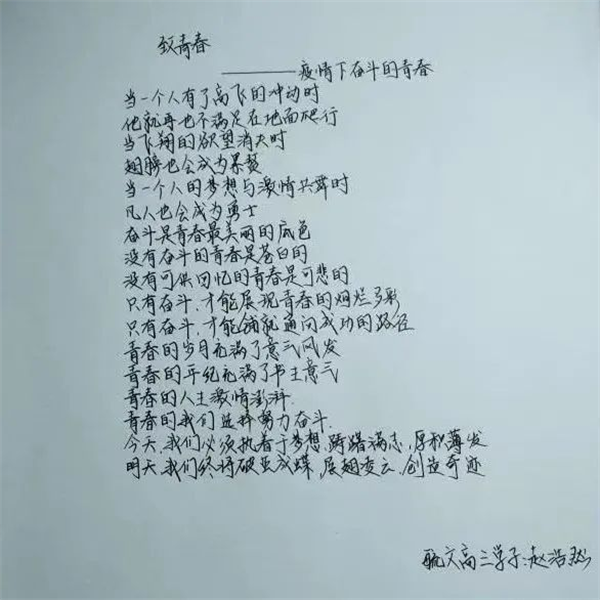 致青春
————疫情下奋斗的青春
当一个人有了高飞的冲动时
他就再也不满足在地面爬行
当飞翔的欲望消失时
翅膀也会成为累赘
当一个人的梦想与激情共舞时
凡人也会成为勇士
奋斗是青春最美丽的底色
没有奋斗的青春是苍白的
没有可供回忆的青春是可悲的
只有奋斗,才能展现青春的绚烂多彩
只有奋斗,才能铺就通向成功的路径
青春的岁月充满了意气风发
青春的年纪充满了书生意气
青春的人生激情澎湃.
青春的我们选择努力奋斗.
今天,我们必须执着于梦想,踌躇满志,厚积薄发
明天,我们终将破茧成蝶,展翅凌云,创造奇迹
文高三学子:赵浩然